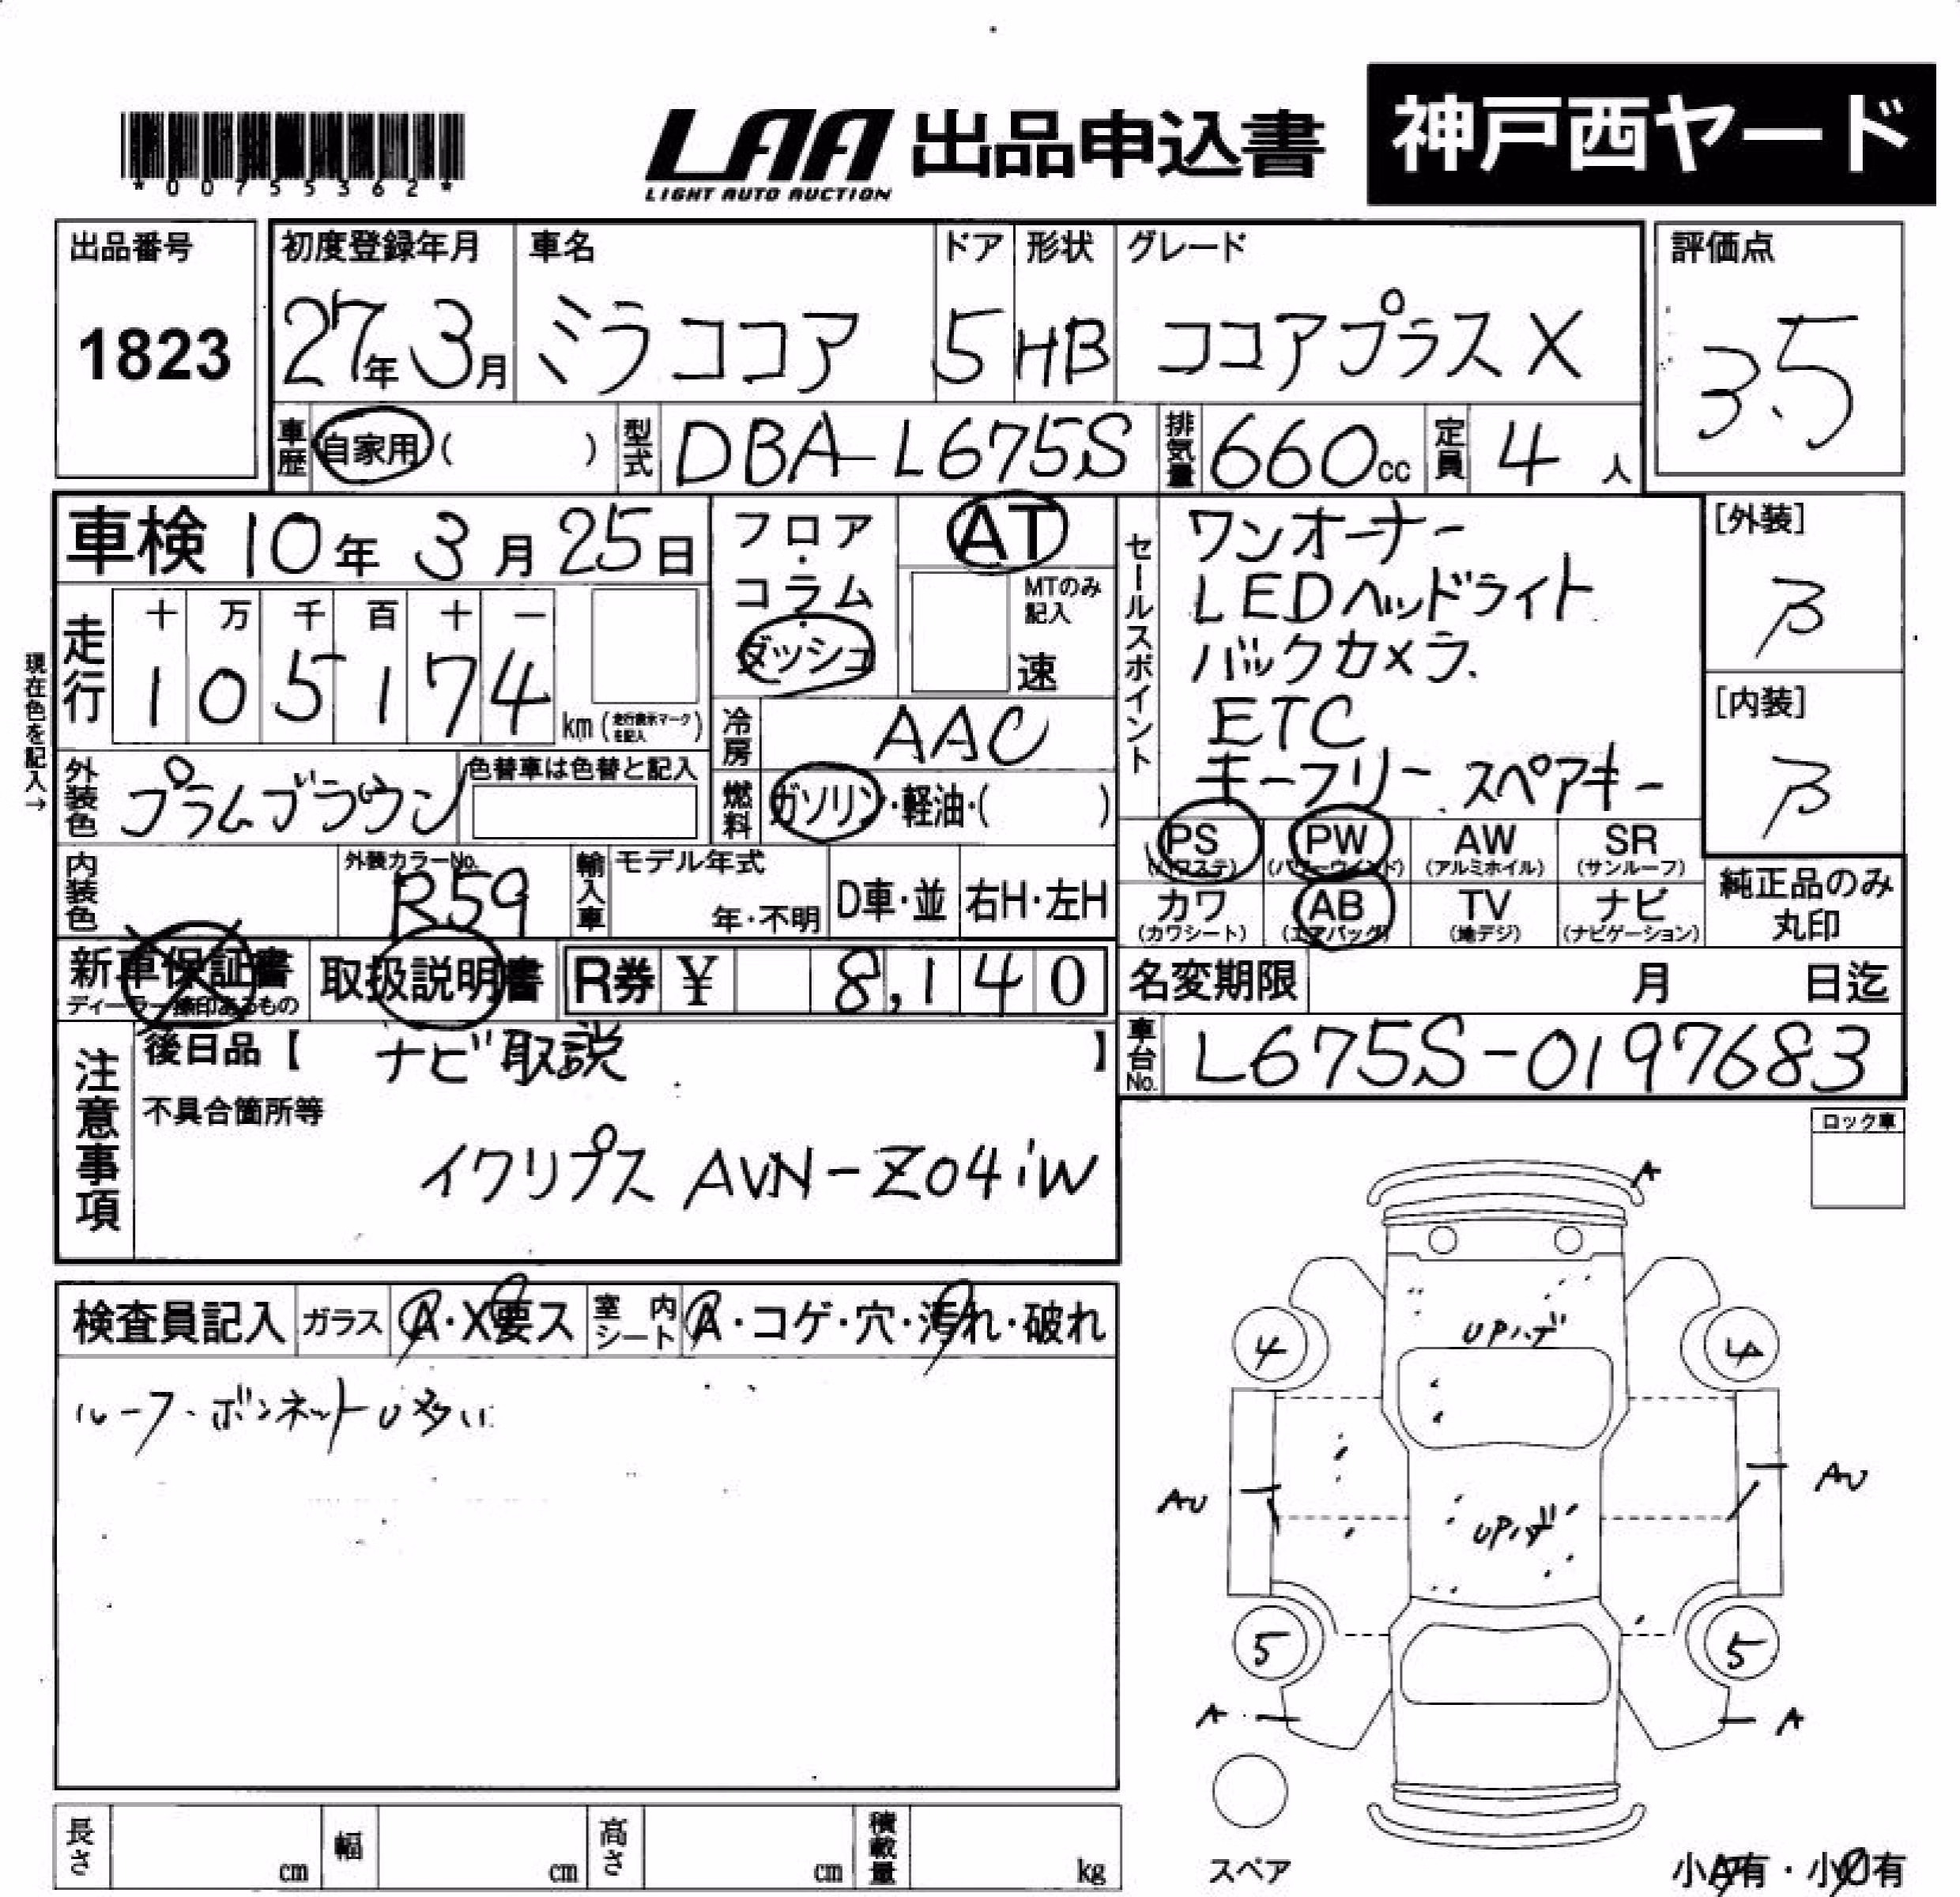 *00755362*
LAA 出品申込書
LIGHT AUTO AUCTION
神戸西ヤード
出品番号
1823
初度登録年月
27年3月
車名
ミラココア
ドア
5
形状
HB
グレード
ココアプラスX
評価点
3.5
車歴
自家用( )
型式
DBA-L675S
排気量
660cc
定員
4人
車検 10年3月25日
フロア・コラム・ダッシュ
AT
MTのみ記入
速
セールスポイント
ワンオーナー
LEDヘッドライト
バックカメラ
ETC
キーフリー スペアキー
[外装]
B
[内装]
B
現在色を記入→
走行
十 万 千 百 十 一
1 0 5 1 7 4
km(走行表示マークを記入)
冷房
AAC
外装色
プラムブラウン
色替車は色替と記入
燃料
ガソリン・軽油・( )
PS
(パワステ)
PW
(パワーウインド)
AW
(アルミホイル)
SR
(サンルーフ)
カワ
(カワシート)
AB
(エアバッグ)
TV
(地デジ)
ナビ
(ナビゲーション)
純正品のみ
丸印
内装色
外装カラーNo.
R59
輸入車
モデル年式
年・不明
D車・並
右H・左H
新車保証書
ディーラー捺印あるもの
取扱説明書
R券 ¥ 8,140
名変期限 月 日迄
車台No.
L675S-0197683
注意事項
後日品【 ナビ取説 】
不具合箇所等
イクリプス AVN-Z04iW
ロック車
検査員記入
ガラス
A・X要ス
室内シート
A・コゲ・穴・汚れ・破れ
ルーフ・ボンネットU多い
A
UPハゲ
4
4
AU
AU
UPハゲ
5
5
A
A
スペア
小A有・小U有
長さ cm
幅 cm
高さ cm
積載量 kg